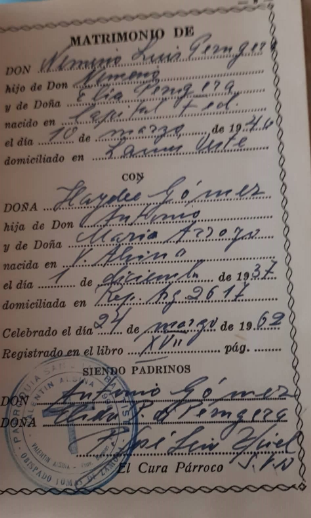 MATRIMONIO DE
DON Nemesio Luis Pernigera
hijo de Don Nemesio
y de Doña Elia Pernigera
nacido en Capital Fed.
el día 10 de marzo de 1940
domiciliado en Lanus Oeste
CON
DOÑA Haydee Gómez
hija de Don Antonio
y de Doña Maria Arroyo
nacida en V. Alsina
el día 1 de diciembre de 1937
domiciliada en Rep. Ag 2617
Celebrado el día 24 de marzo de 1962
Registrado en el libro XVII pág.
SIENDO PADRINOS
DON Antonio Gómez
DOÑA Elida P. de Pernigera
El Cura Párroco
PARROQUIA SAN
VALENTIN ALSINA
OBISPADO LOMAS DE ZAMORA